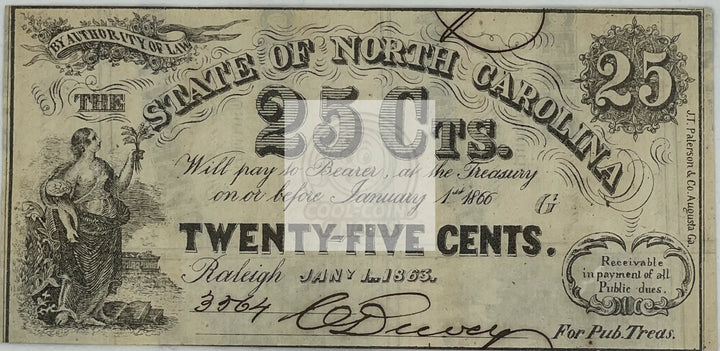 BY AUTHORITY OF LAW
THE
STATE OF NORTH CAROLINA
25
25 CTS.
Will pay to Bearer, at the Treasury
on or before January 1st 1866
G
TWENTY-FIVE CENTS.
Raleigh JANY 1..1863.
3564
For Pub. Treas.
Receivable
in payment of all
Public dues.
J.T. Paterson & Co. Augusta Ga.